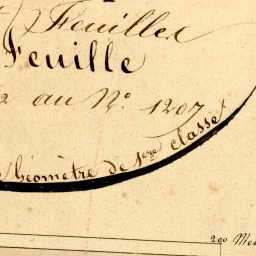 Feuilles
Feuille
2 au N.º 1207
Géomètre de 1ere classe
200 Me